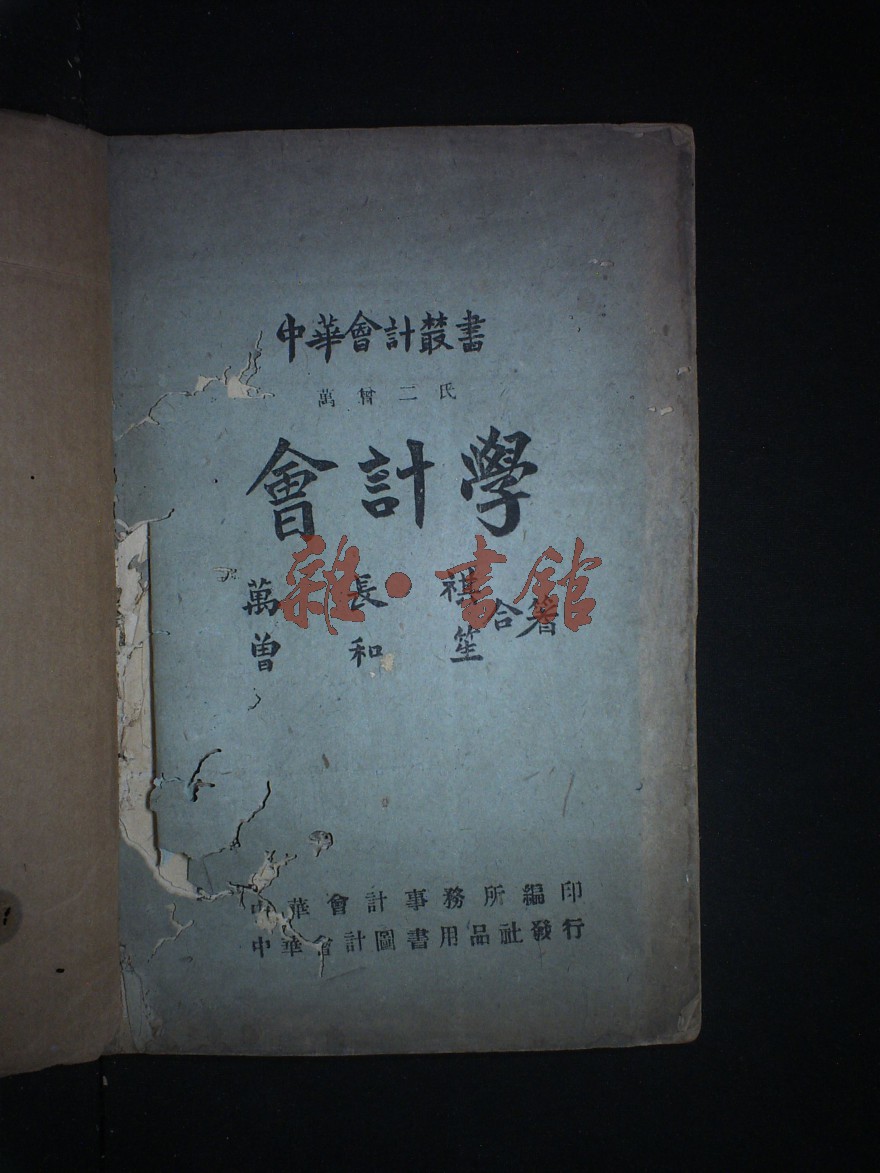 中華會計叢書
萬曾二氏
會計學
萬長祺
曾和笙
合著
雜·書館
中華會計事務所編印
中華會計圖書用品社發行